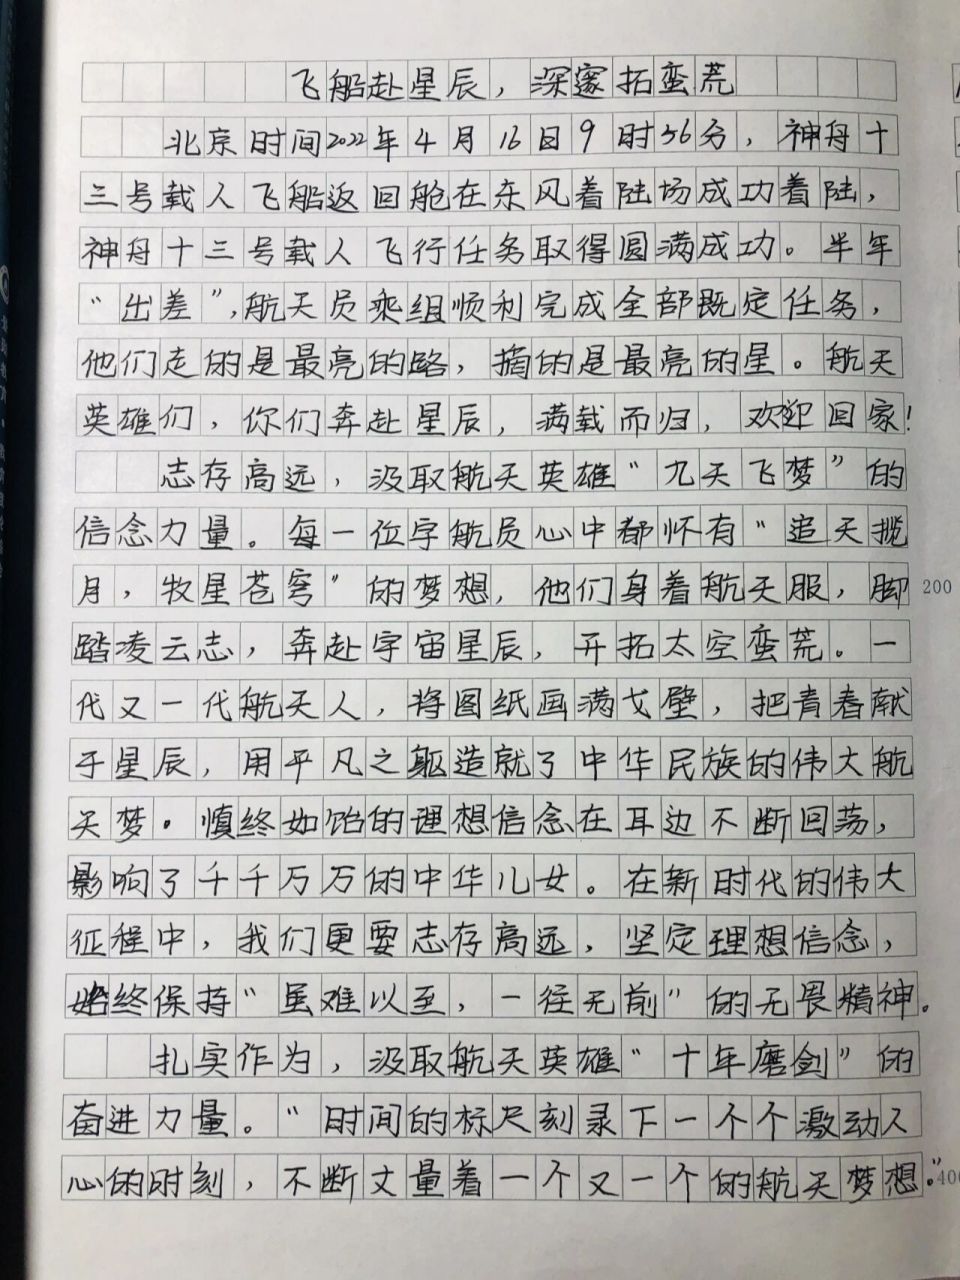 飞船赴星辰，深邃拓蛮荒
北京时间2022年4月16日9时56分，神舟十
三号载人飞船返回舱在东风着陆场成功着陆，
神舟十三号载人飞行任务取得圆满成功。半年
“出差”，航天员乘组顺利完成全部既定任务，
他们走的是最亮的路，摘的是最亮的星。航天
英雄们，你们奔赴星辰，满载而归，欢迎回家！
志存高远，汲取航天英雄“九天飞梦”的
信念力量。每一位宇航员心中都怀有“追天揽
月，牧星苍穹”的梦想，他们身着航天服，脚
200
踏凌云志，奔赴宇宙星辰，开拓太空蛮荒。一
代又一代航天人，将图纸画满戈壁，把青春献
于星辰，用平凡之躯造就了中华民族的伟大航
天梦。慎终如饴的理想信念在耳边不断回荡，
影响了千千万万的中华儿女。在新时代的伟大
征程中，我们更要志存高远，坚定理想信念，
始终保持“虽难以至，一往无前”的无畏精神。
扎实作为，汲取航天英雄“十年磨剑”的
奋进力量。“时间的标尺刻录下一个个激动人
心的时刻，不断丈量着一个又一个的航天梦想。”
400